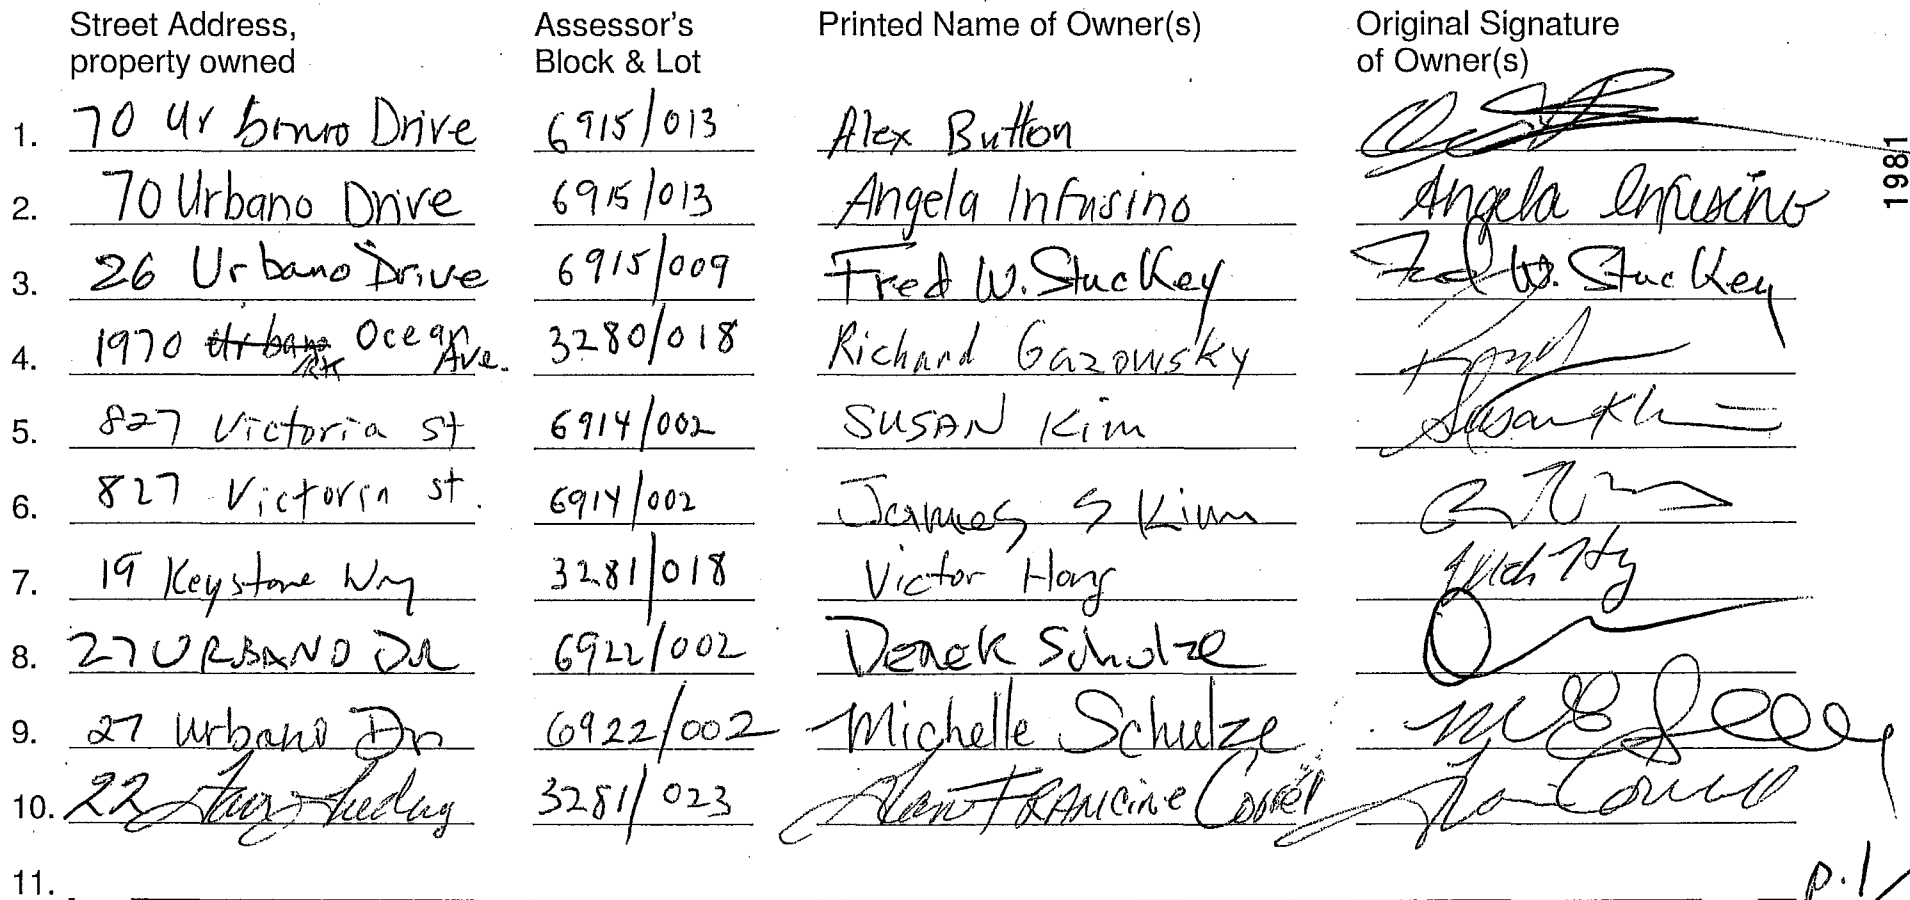 Street Address, property owned Assessor's Block & Lot Printed Name of Owner(s) Original Signature of Owner(s)
1. 70 Urbano Drive 6915/013 Alex Button
1981
2. 70 Urbano Drive 6915/013 Angela Infusino Angela Infusino
3. 26 Urbano Drive 6915/009 Fred W. Stuckey Fred W. Stuckey
4. 1970 Urbano Ocean Ave. 3280/018 Richard Gazowsky
5. 827 Victoria st 6914/002 SUSAN Kim Susan Kim
6. 827 Victoria st. 6914/002 James S Kim
7. 19 Keystone Way 3281/018 Victor Hong
8. 27 URBANO DR 6922/002 Derek Schulze
9. 27 Urbano Dr 6922/002 Michelle Schulze
10. 22 3281/023 FRANCINE
11.
p.1